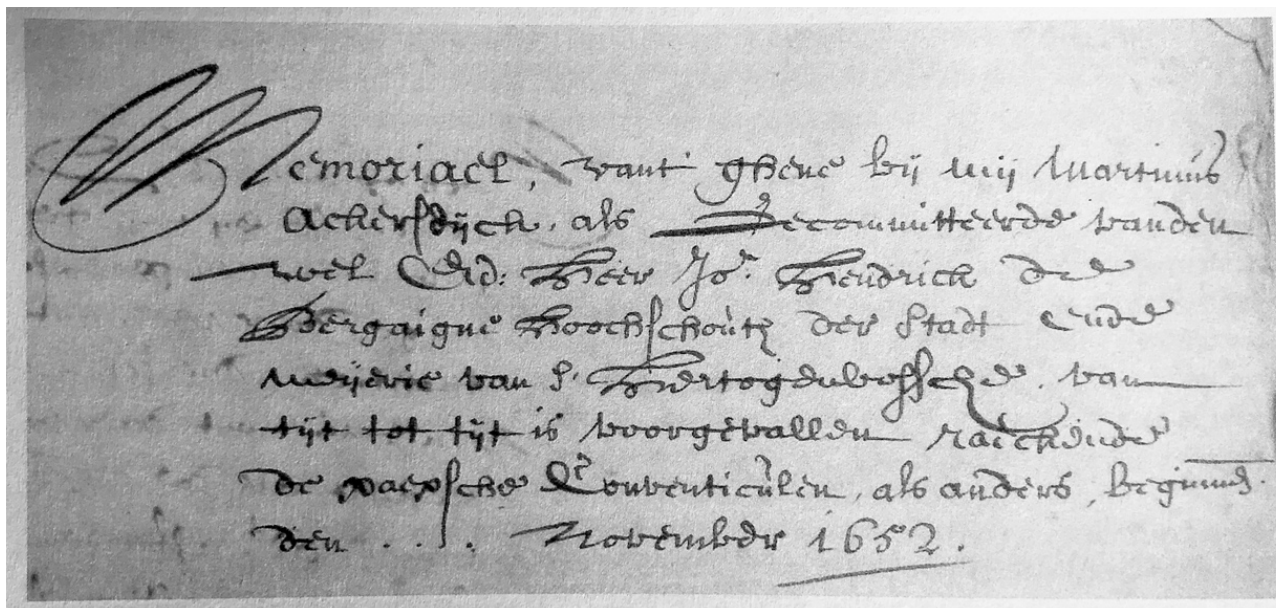 Memoriael, vant ghene bij mij Martinus
Ackersdijck, als Gecommitteerde vanden
wel Ed: Heer Jor. Hendrick de
Bergaigne Hoochschoutz der stadt ende
meijerie van s. Hertogenbossche. van
tijt tot tijt is voorgevallen raeckende
de paepsche Conventiculen, als anders, beginnend.
den . . . . November 1652.